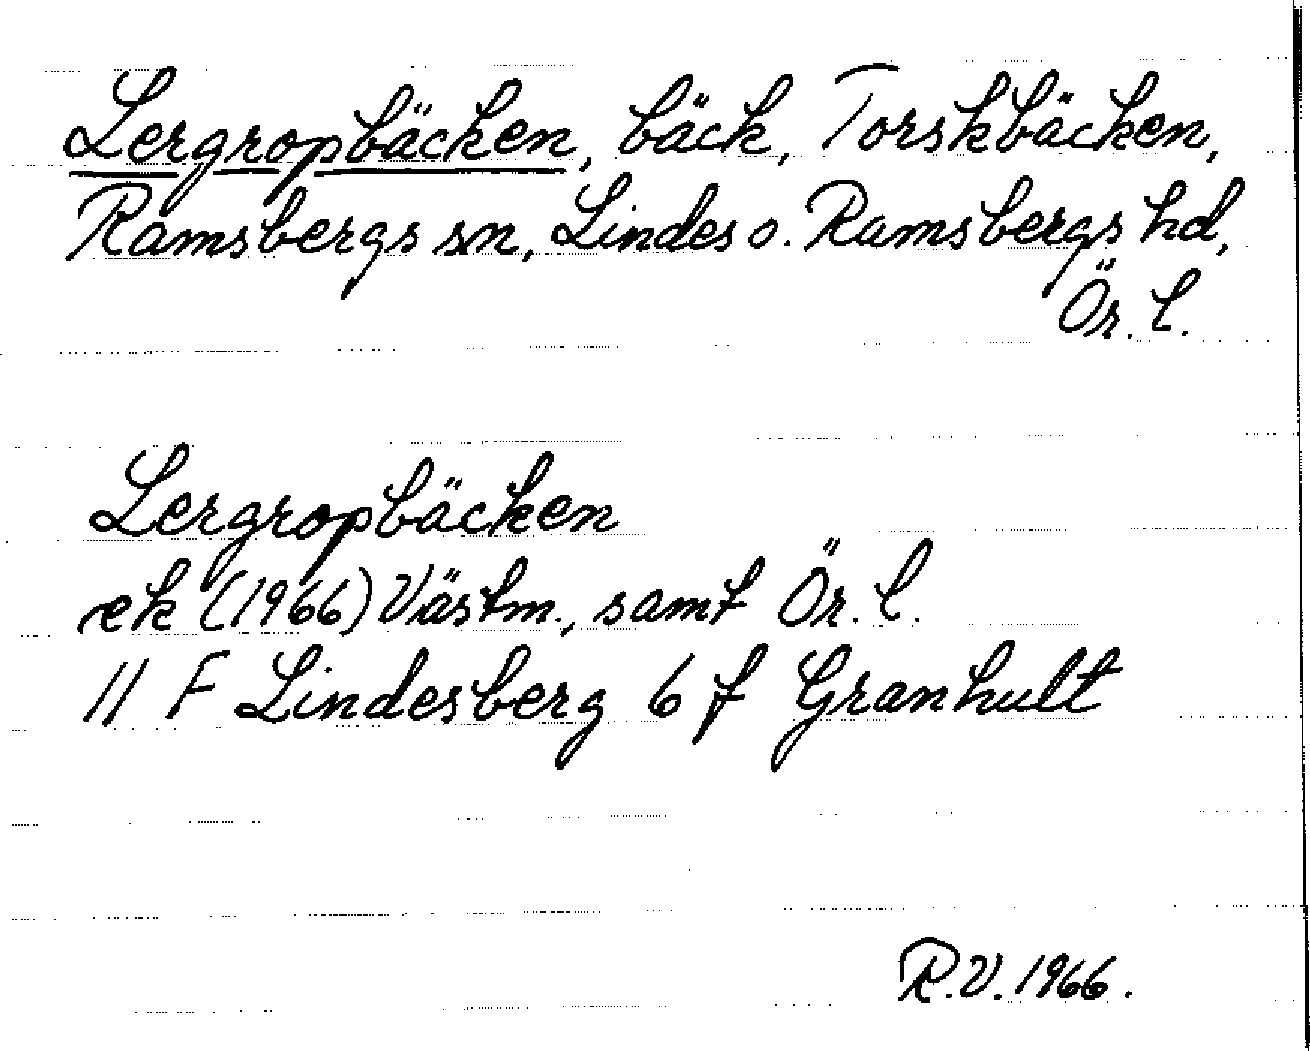 Lergropbäcken, bäck, Torskbäcken,
Ramsbergs sn, Lindes o. Ramsbergs hd,
Ör. l.
Lergropbäcken
ek (1966) Västm., samt Ör. l.
11 F Lindesberg 6 f Granhult
R.V. 1966.